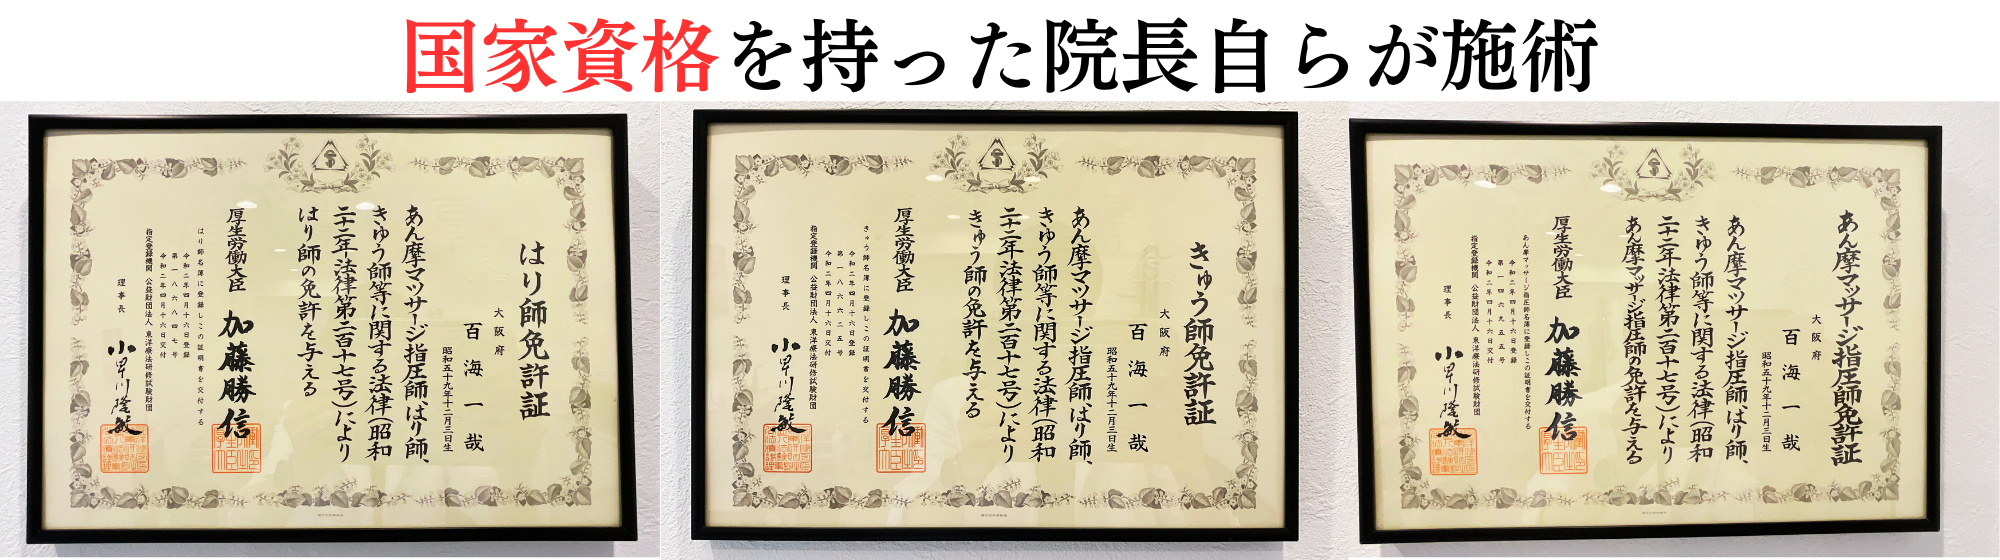 国家資格を持った院長自らが施術
はり師免許証
大阪府
百海一哉
昭和五十九年十二月三日生
あん摩マツサージ指圧師、はり師、
きゆう師等に関する法律（昭和
二十二年法律第二百十七号）により
はり師の免許を与える
厚生労働大臣 加藤勝信
はり師名簿に登録しこの証明書を交付する
令和二年四月十六日登録
第一八六八四七号
令和二年四月十六日交付
指定登録機関 公益財団法人 東洋療法研修試験財団
理事長 小早川隆敏
きゆう師免許証
大阪府
百海一哉
昭和五十九年十二月三日生
あん摩マツサージ指圧師、はり師、
きゆう師等に関する法律（昭和
二十二年法律第二百十七号）により
きゆう師の免許を与える
厚生労働大臣 加藤勝信
きゆう師名簿に登録しこの証明書を交付する
令和二年四月十六日登録
第一八六六三二号
令和二年四月十六日交付
指定登録機関 公益財団法人 東洋療法研修試験財団
理事長 小早川隆敏
あん摩マツサージ指圧師免許証
大阪府
百海一哉
昭和五十九年十二月三日生
あん摩マツサージ指圧師、はり師、
きゆう師等に関する法律（昭和
二十二年法律第二百十七号）により
あん摩マツサージ指圧師の免許を与える
厚生労働大臣 加藤勝信
あん摩マツサージ指圧師名簿に登録しこの証明書を交付する
令和二年四月十六日登録
第一四六九五五号
令和二年四月十六日交付
指定登録機関 公益財団法人 東洋療法研修試験財団
理事長 小早川隆敏